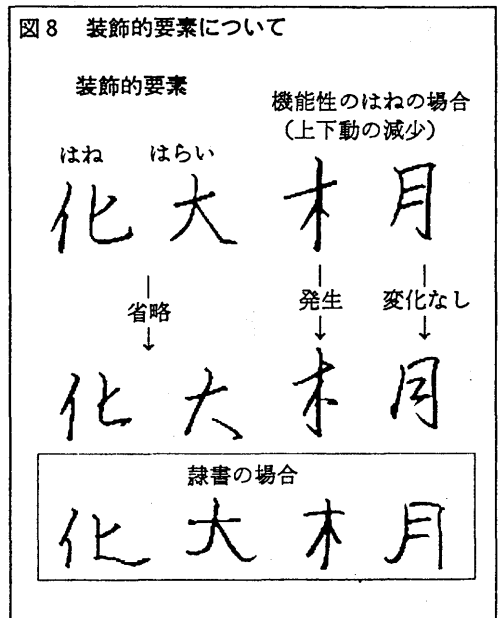 図8 装飾的要素について
装飾的要素
機能性のはねの場合
（上下動の減少）
はね はらい
化 大 木 月
省略 発生 変化なし
化 大 木 月
隷書の場合
化 大 木 月